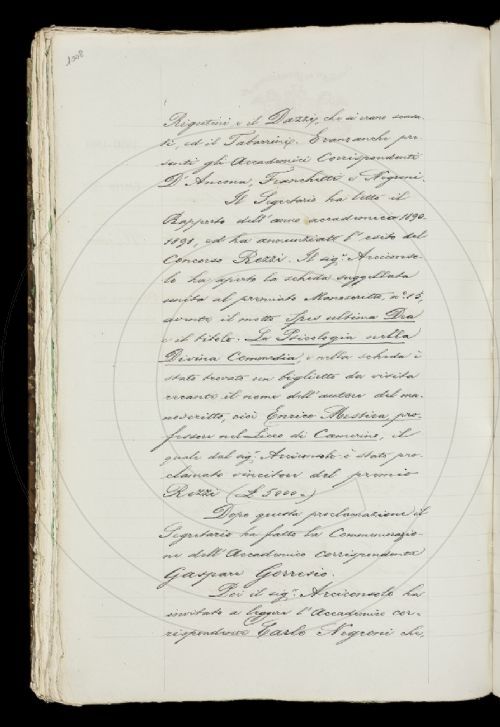 1508
Rigutini e il Dazzi, che si erano scusa-
ti, ed il Tabarrini. Eran anche pre-
senti gli Accademici Corrispondenti
D'Ancona, Franchetti e Negroni.
Il Segretario ha letto il
Rapporto dell'anno accademico 1890-
1891, ed ha annunziato l'esito del
Concorso Rezzi. Il sig.r Arciconso-
lo ha aperto la scheda suggellata
unita al premiato Manoscritto, n.o 15,
avente il motto Spes ultima Dea
e il titolo: La Psicologia nella
Divina Commedia, e nella scheda è
stato trovato un biglietto da visita
recante il nome dell'autore del ma-
noscritto, cioè Enrico Mestica, pro-
fessore nel Liceo di Camerino, il
quale dal sig.r Arciconsolo è stato pro-
clamato vincitore del premio
Rezzi (£ 5000.)
Dopo questa proclamazione il
Segretario ha fatto la Commemorazio-
ne dell'Accademico corrispondente
Gaspare Gorresio.
Poi il sig.r Arciconsolo ha
invitato a leggere l'Accademico cor-
rispondente Carlo Negroni che,